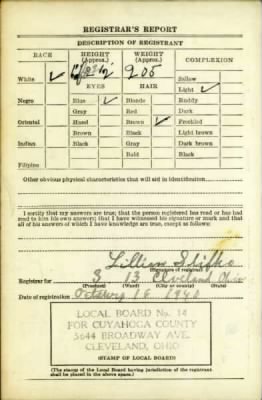 REGISTRAR'S REPORT
DESCRIPTION OF REGISTRANT
RACE HEIGHT (Approx.) WEIGHT (Approx.) COMPLEXION
White ✓ 205 Sallow
EYES HAIR Light ✓
Negro Blue ✓ Blonde Ruddy
Gray Red Dark
Oriental Hazel Brown ✓ Freckled
Brown Black Light brown
Indian Black Gray Dark brown
Bald Black
Filipino
Other obvious physical characteristics that will aid in identification
I certify that my answers are true; that the person registered has read or has had
read to him his own answers; that I have witnessed his signature or mark and that
all of his answers of which I have knowledge are true, except as follows:
Lillian
(Signature of registrar)
Registrar for 8 13 Cleveland Ohio
(Precinct) (Ward) (City or county) (State)
Date of registration October 16 1940
LOCAL BOARD No. 14
FOR CUYAHOGA COUNTY
5644 BROADWAY AVE.
CLEVELAND, OHIO
(STAMP OF LOCAL BOARD)
(The stamp of the Local Board having jurisdiction of the registrant shall be
placed in the above space.)